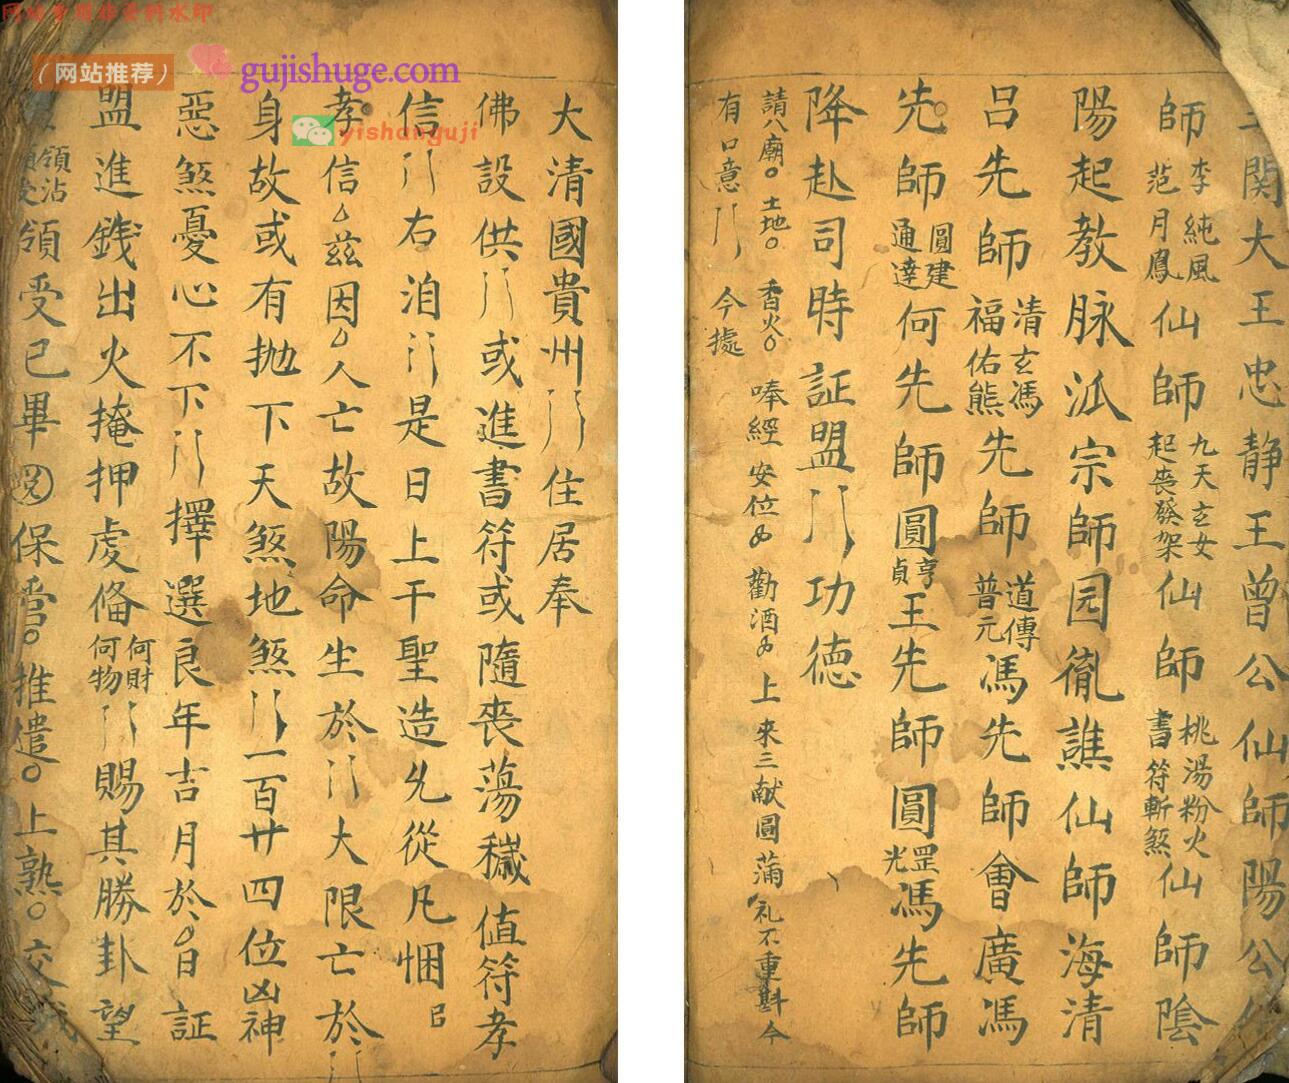 网站专用非资料水印
（网站推荐）
gujishuge.com
yishanguji
關大王忠静王曾公仙師陽公
師李純風范月鳳仙師九天玄女起丧發架仙師桃湯粉火書符斬煞仙師陰
陽起教脉派宗師园胤譙仙師海清
吕先師清玄馮福佑熊先師道傳普元馮先師會廣馮
先師圓建通達何先師圓亨貞王先師圓罡光馮先師
降赴司時証盟功德
請八廟土地香火唪經安位勸酒上來三献圓蒲礼不重斟今
有口意今據
大清國貴州住居奉
佛設供或進書符或隨丧蕩穢值符孝
信右洎是日上干聖造允從凡悃
孝信兹因人亡故陽命生於大限亡於
身故或有抛下天煞地煞一百廿四位凶神
惡煞憂心不下擇選良年吉月於日証
盟進錢出火掩押虔俻何財何物賜其勝卦望
領沾領受領受已畢保雪推遣上熟交